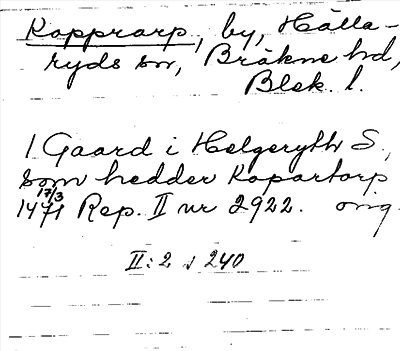 Kopprarp, by, Hälla-
ryds sn, Bräkne hd,
Blek. l.
1 Gaard i Helgeryth S.,
som hedder Kopartorp
17/3
1471 Rep. II nr 2922. orig.
II: 2 s 240